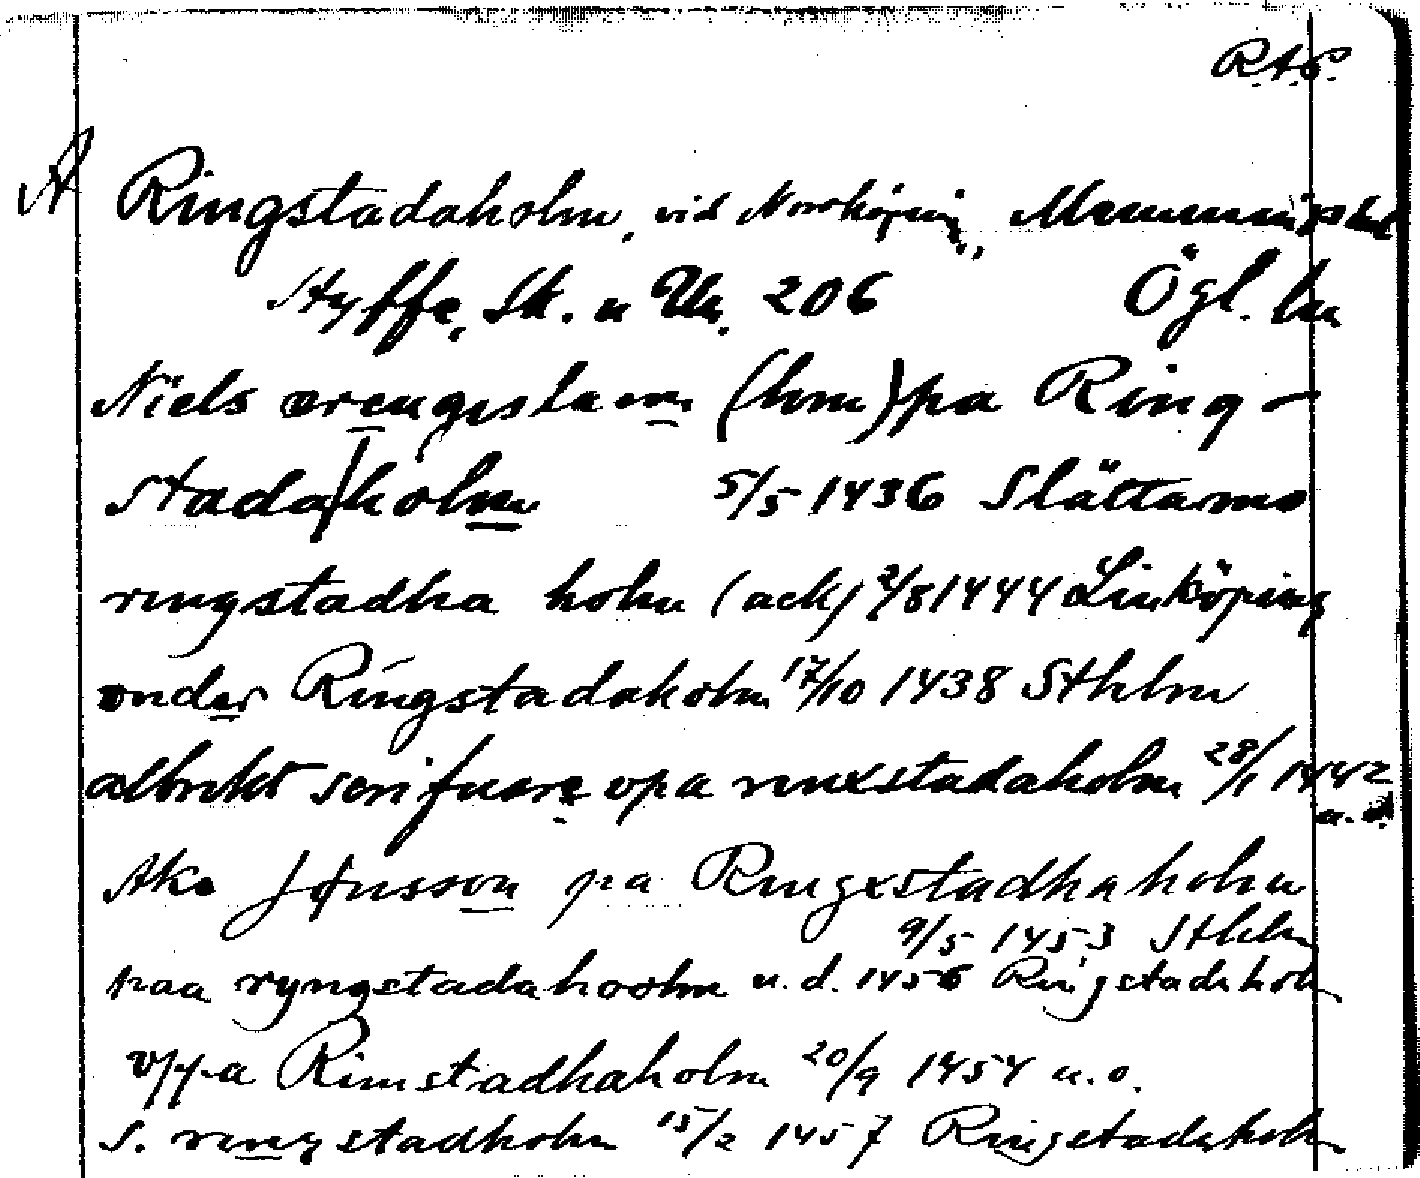 RAP.
A Ringstadaholm, vid Norrköping, Memmings hd
Styffe, Sk. u Un. 206 Ögl. ln
Niels erengislam (hm) pa Ring-
stada/holm 5/5 1436 Slättamo
ringstadha holm (ack) 2/8 1444 Linköping
onder Ringstadaholm 17/10 1438 Sthlm
albrikt scrifuare vpa rinxstadaholm 28/1 1442
u. o.
Ake Jönsson pa Ringxstadhaholm
9/5 1453 Sthlm
paa ryngstadahoolm u. d. 1456 Ringstadaholm
vppa Rimstadhaholm 20/9 1454 u. o.
S. ringstadholm 15/2 1457 Ringstadaholm